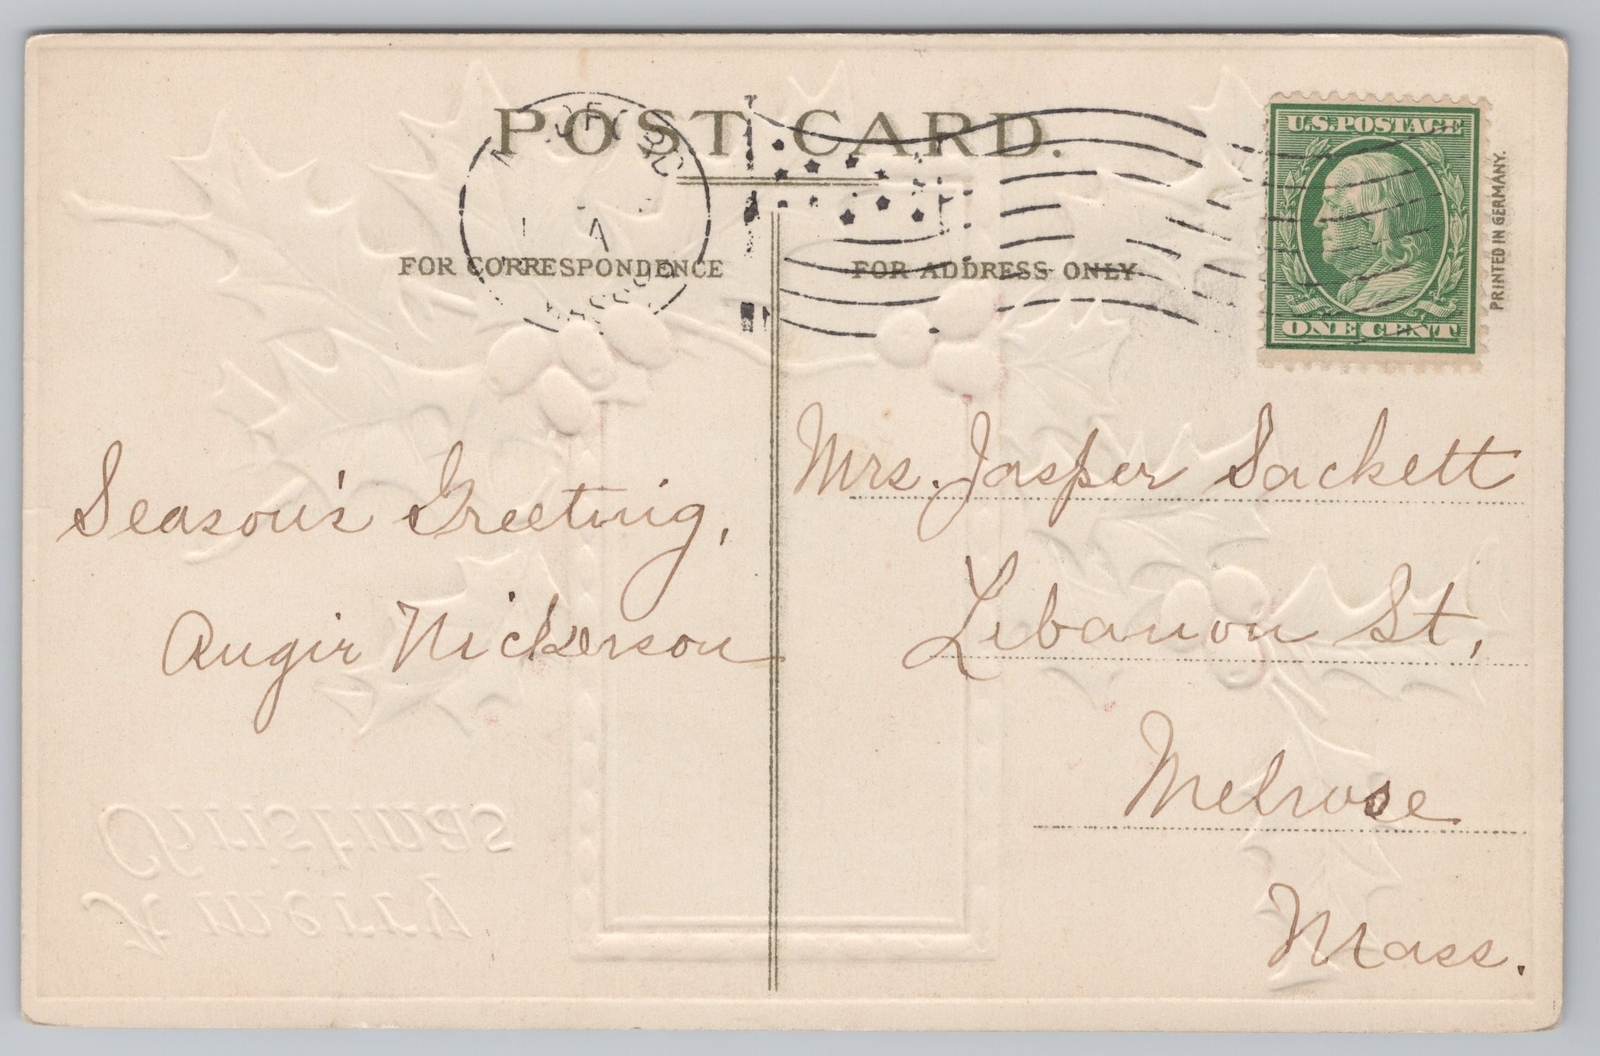 POST CARD.
FOR CORRESPONDENCE
FOR ADDRESS ONLY
U.S. POSTAGE
ONE CENT
PRINTED IN GERMANY.
Season's Greeting,
Angir Nickerson
Mrs. Jasper Sackett
Lebanon St,
Melrose
Mass.
A merry
Christmas